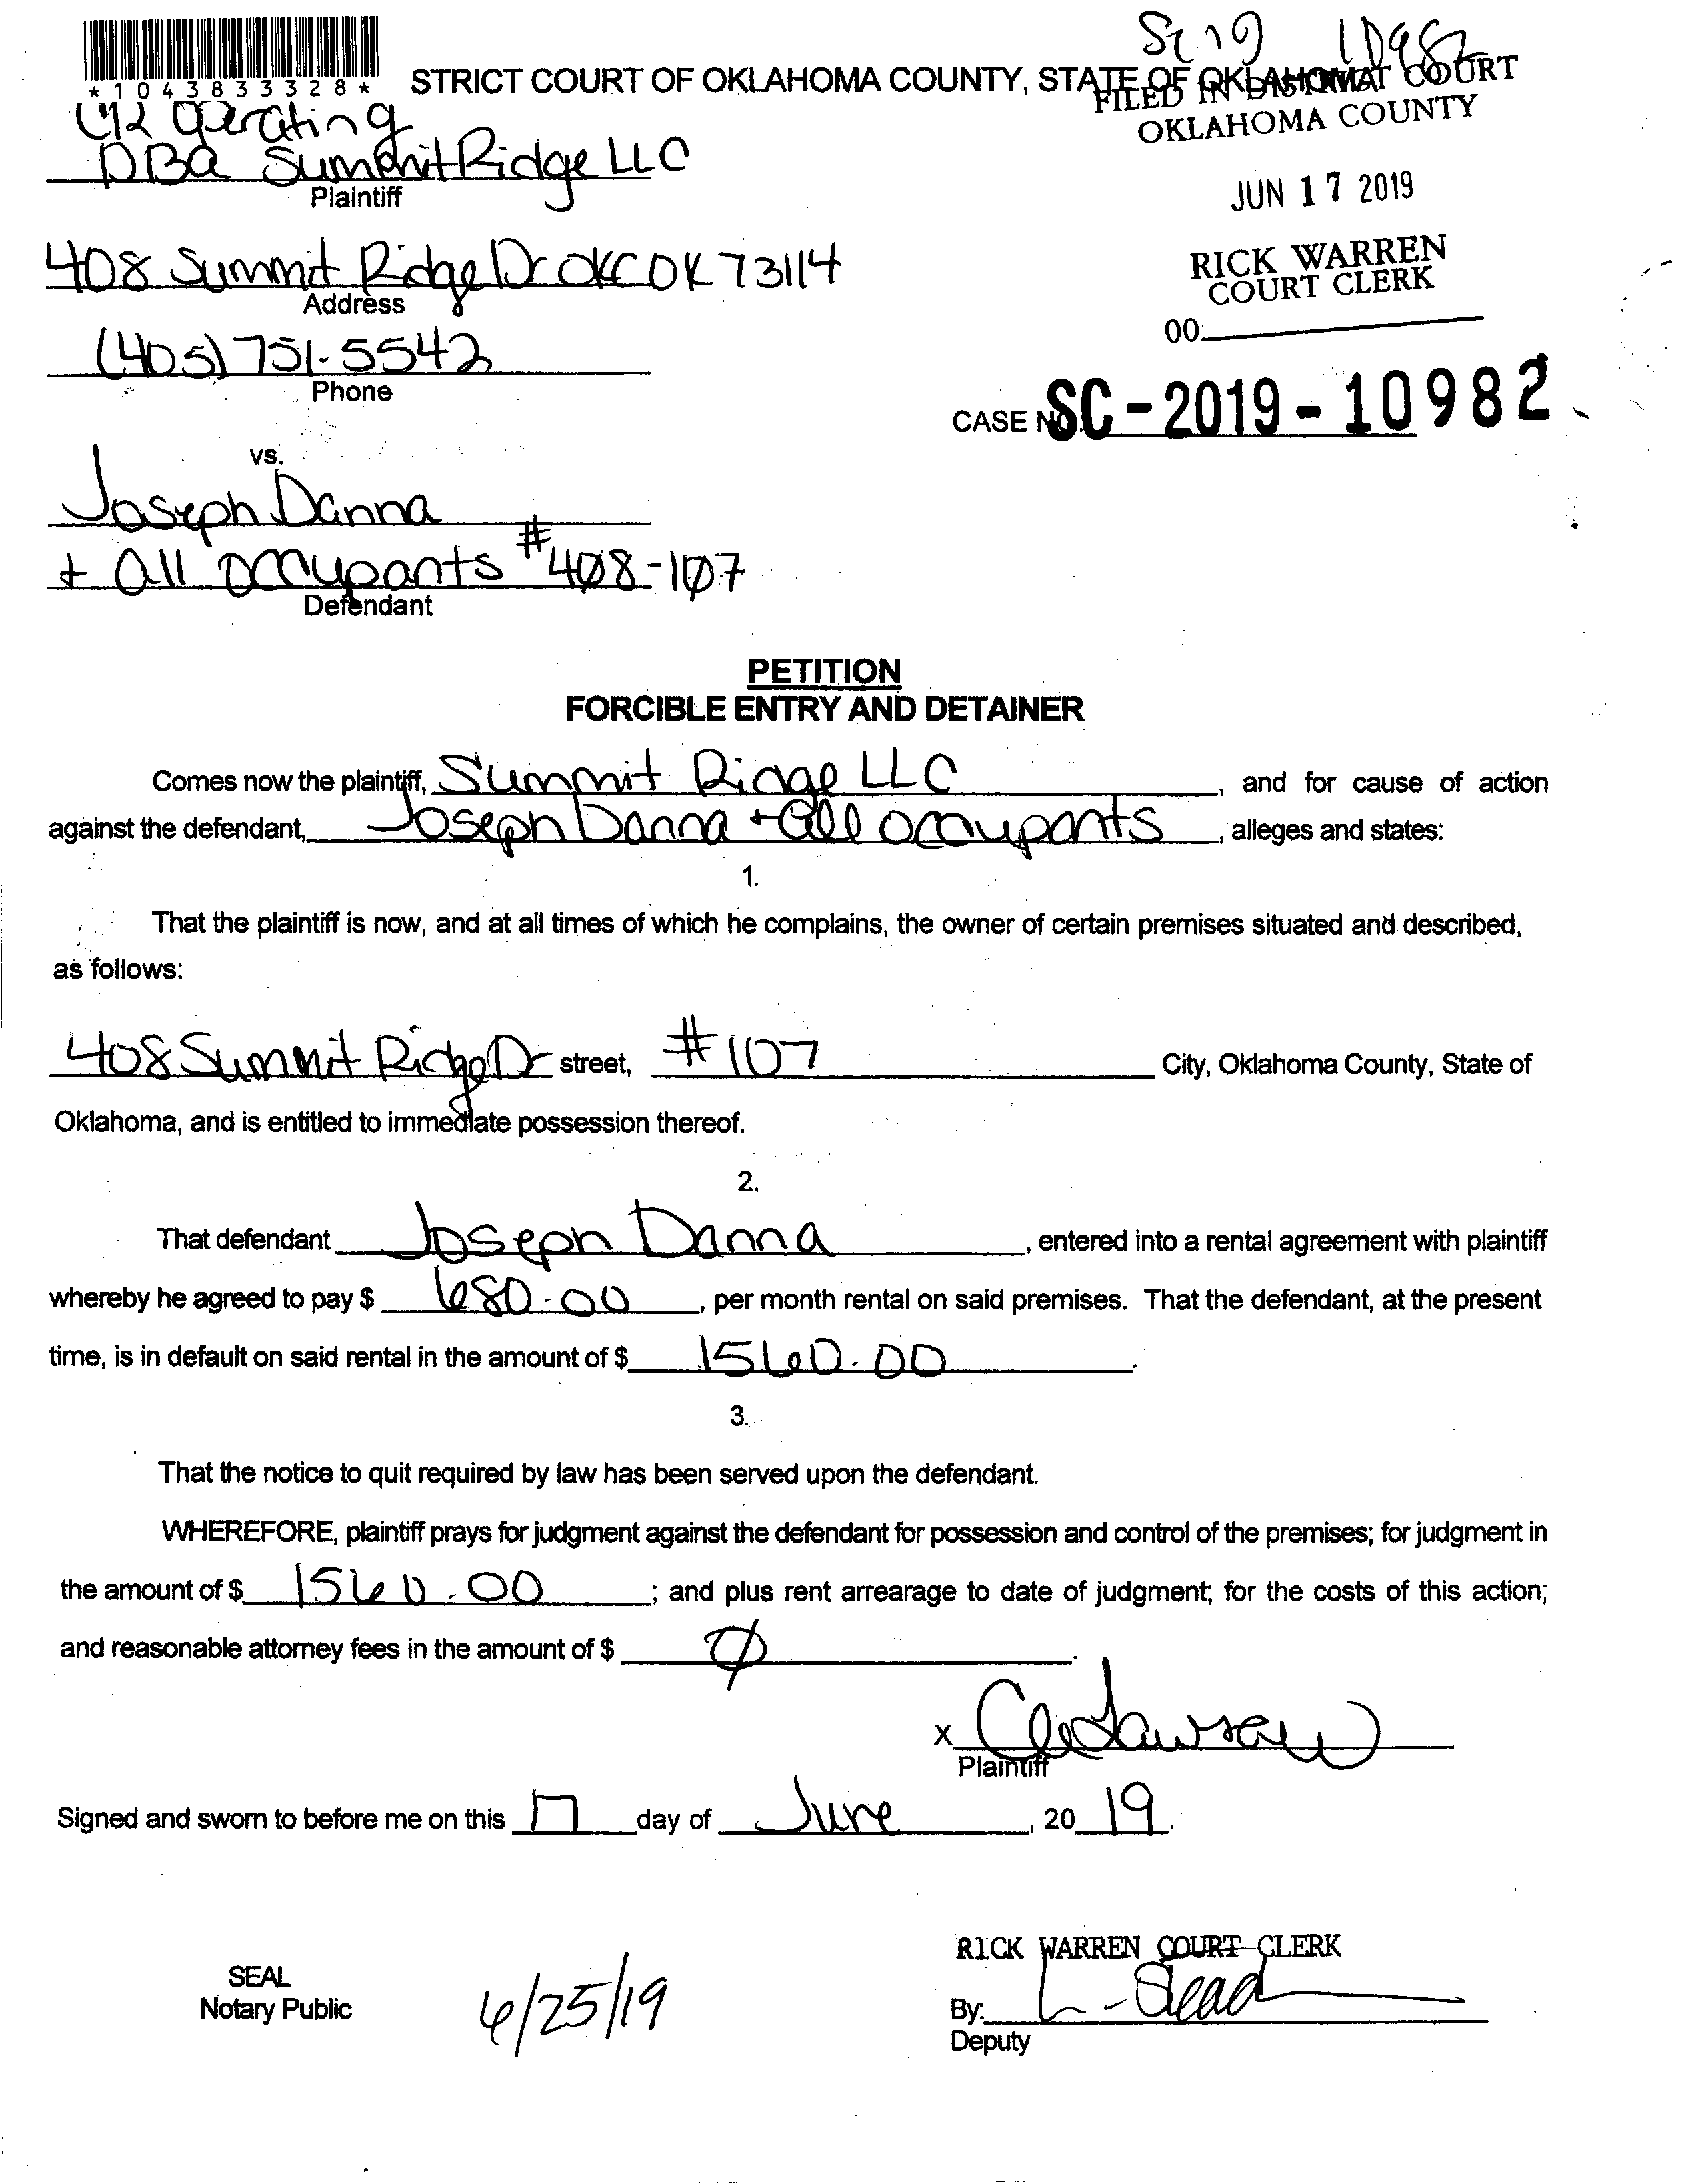 SC 19 10982
*1043833328*
STRICT COURT OF OKLAHOMA COUNTY, STATE OF OKLAHOMA
FILED IN DISTRICT COURT
OKLAHOMA COUNTY
Operating
DBA Summit Ridge LLC
Plaintiff
JUN 17 2019
408 Summit Ridge Dr OKC OK 73114
Address
RICK WARREN
COURT CLERK
00
(405) 751-5542
Phone
CASE NO. SC-2019-10982
vs.
Joseph Danna
+ All occupants #408-107
Defendant
PETITION
FORCIBLE ENTRY AND DETAINER
Comes now the plaintiff, Summit Ridge LLC, and for cause of action
against the defendant, Joseph Danna + all occupants, alleges and states:
1.
That the plaintiff is now, and at all times of which he complains, the owner of certain premises situated and described,
as follows:
408 Summit Ridge Dr street, #107 City, Oklahoma County, State of
Oklahoma, and is entitled to immediate possession thereof.
2.
That defendant Joseph Danna, entered into a rental agreement with plaintiff
whereby he agreed to pay $ 680.00, per month rental on said premises. That the defendant, at the present
time, is in default on said rental in the amount of $ 1560.00.
3.
That the notice to quit required by law has been served upon the defendant.
WHEREFORE, plaintiff prays for judgment against the defendant for possession and control of the premises; for judgment in
the amount of $ 1560.00; and plus rent arrearage to date of judgment; for the costs of this action;
and reasonable attorney fees in the amount of $ Ø.
X
Plaintiff
Signed and sworn to before me on this 17 day of June, 2019.
RICK WARREN COURT CLERK
SEAL
Notary Public
6/25/19
By:
Deputy